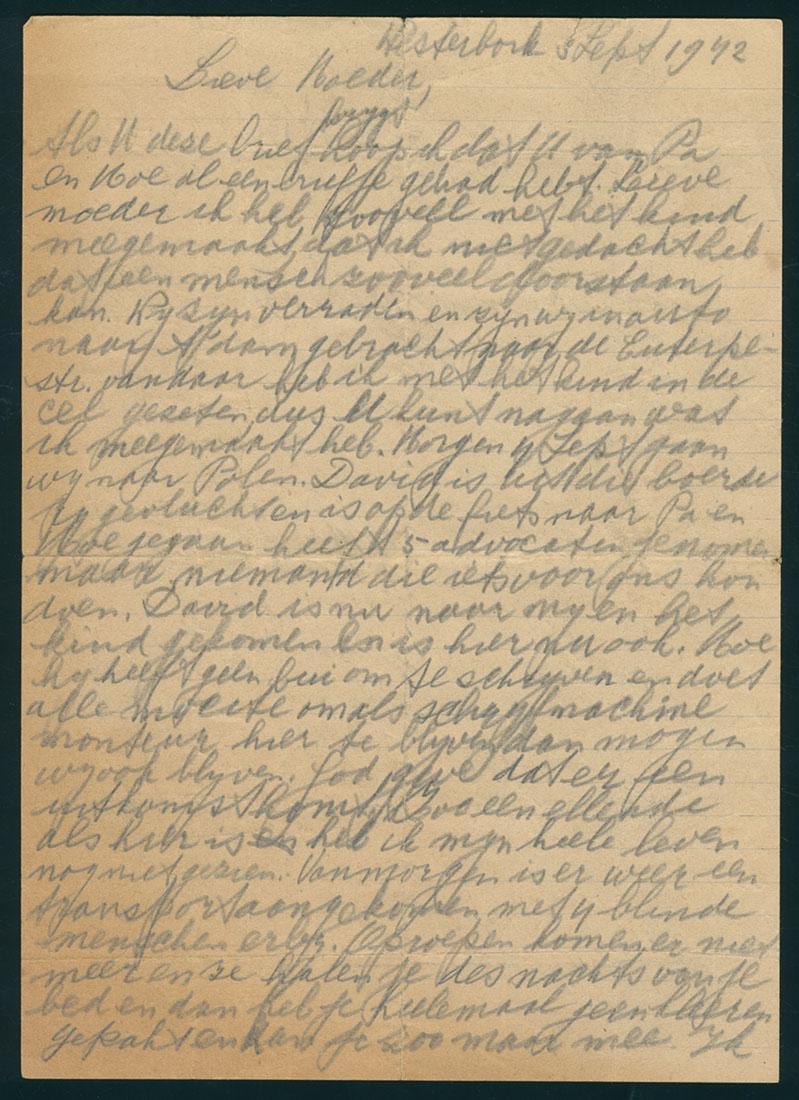 Westerbork 3 Sept 1942
Lieve Moeder,
krijgt
Als U deze brief hoop ik dat U van Pa
en Moe al een briefje gehad hebt. Lieve
moeder ik heb zooveel met het kind
meegemaakt dat ik niet gedacht heb
dat een mensch zooveel doorstaan
kan. Wy zyn verraden en zyn wy in auto
naar A'dam gebracht naar de Euterpe-
str. vandaar heb ik met het kind in de
cel gezeten, dus U kunt nagaan wat
ik meegemaakt heb. Morgen 4 Sept gaan
wy naar Polen. David is uit die boerde
ry gevlucht en is op de fiets naar Pa en
Moe gegaan heeft 5 advocaten genomen
maar niemand die iets voor ons kon
doen. David is nu naar my en het
kind gekomen en is hier nu ook. Moe
hy heeft geen bui om te schryven en doet
alle moeite om als schryfmachine
monteur hier te blyven dan mogen
wy ook blyven. God geve dat er een
uitkomst komt. Zoo een ellende
als hier is heb ik myn heele leven
nog niet gezien. Vanmorgen is er weer een
transport aangekomen met 4 blinde
menschen erby. Oproepen komen er niet
meer en ze halen je des nachts van je
bed en dan heb je heelemaal geen kleeren
gepakt en kan je zoo maar mee. Ik